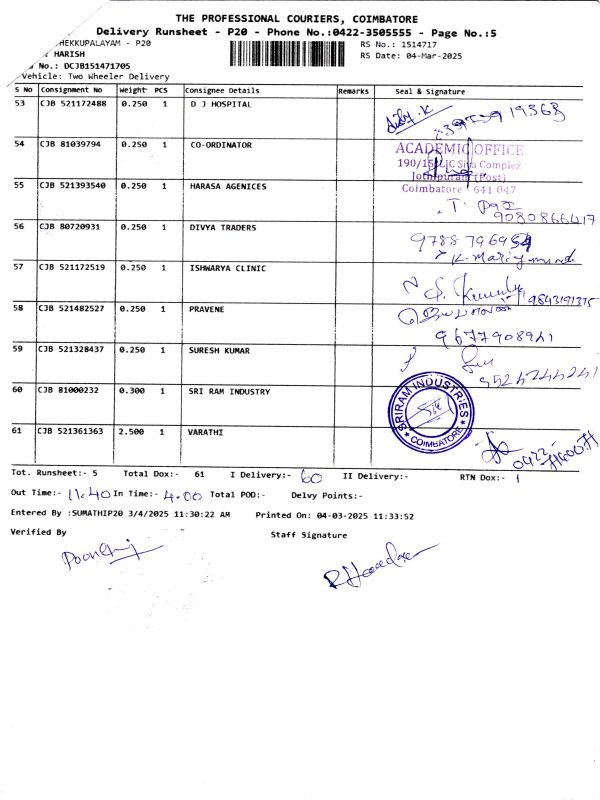 THE PROFESSIONAL COURIERS, COIMBATORE
Delivery Runsheet - P20 - Phone No.:0422-3505555 - Page No.:5
HEKKUPALAYAM - P20
RS No.: 1514717
HARISH
RS Date: 04-Mar-2025
No.: DCJB151471705
Vehicle: Two Wheeler Delivery
S No Consignment No Weight PCS Consignee Details Remarks Seal & Signature
53 CJB 521172488 0.250 1 D J HOSPITAL
54 CJB 81039794 0.250 1 CO-ORDINATOR
ACADEMIC OFFICE
190/15, LIC Siva Complex
Jothipuram (Post)
Coimbatore 641 047
55 CJB 521393540 0.250 1 HARASA AGENICES
9080866417
56 CJB 80720931 0.250 1 DIVYA TRADERS
57 CJB 521172519 0.250 1 ISHWARYA CLINIC
9843191375
58 CJB 521482527 0.250 1 PRAVENE
9677908941
59 CJB 521328437 0.250 1 SURESH KUMAR
9524244241
60 CJB 81000232 0.300 1 SRI RAM INDUSTRY
SRIRAM INDUSTRIES
COIMBATORE
61 CJB 521361363 2.500 1 VARATHI
Tot. Runsheet:- 5 Total Dox:- 61 I Delivery:- 60 II Delivery:- RTN Dox:- 1
Out Time:- 11.40 In Time:- 4.00 Total POD:- Delvy Points:-
Entered By :SUMATHIP20 3/4/2025 11:30:22 AM Printed On: 04-03-2025 11:33:52
Verified By Staff Signature